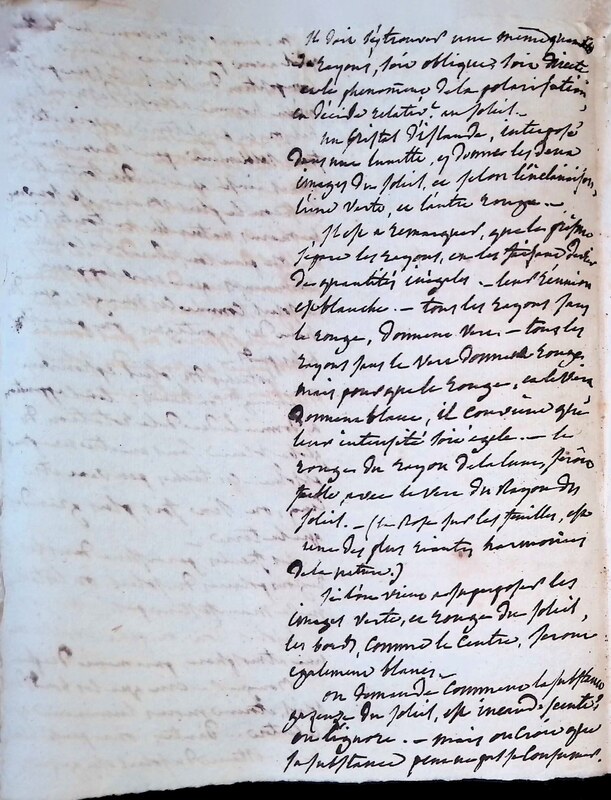 Il doit s'y trouver une même quantité
de rayons, soit obliques, soit directs
et le phénomène de la polarisation
en décide relativ.t au soleil. —
un Cristal d'islande, interposé
dans une lunette, y donner les deux
images du soleil, et selon l'inclinaison,
l'une verte, et l'autre rouge. —
Il est a remarquer, que le prisme
sépare les rayons, en les faisant dévier
de quantités inégales. — leur réunion
est blanche. — tous les rayons sans
le rouge, donnent vert. — tous les
rayons sans le vert donnent rouge,
mais pour que le rouge, et le vert
donnent blanc, il convient que
leur intensité soit égale. — le
rouge du rayon de la lune, seroit
faible avec le vert du Rayon du
soleil. — (la Rose sur les feuilles, est
une des plus riantes harmonies
de la nature.)
Si l'on vient a superposer les
images verte, et rouge du soleil,
les bords, comme le centre, seront
également blancs. —
on demande comment la substance
gazeuse du soleil, est incandescente?
on l'ignore. — mais on croit que
la substance peut ne pas se consumer.